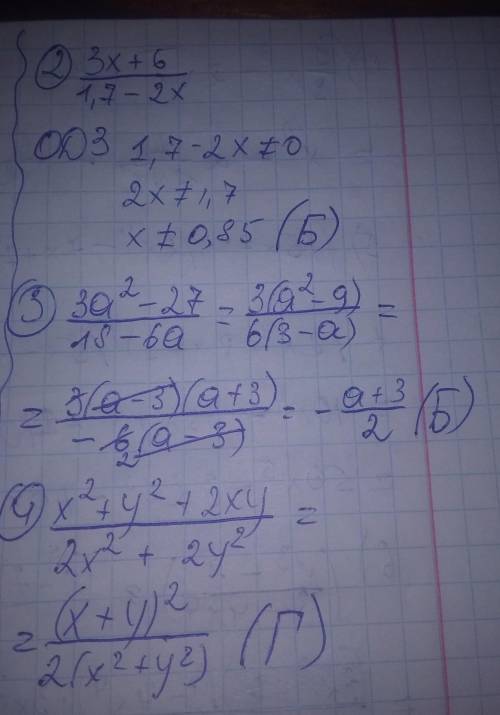 ② (3x+6)/(1,7-2x)
ОДЗ 1,7-2x≠0
2x≠1,7
x≠0,85 (Б)
③ (3a²-27)/(18-6a) = 3(a²-9)/6(3-a) =
= 3(a-3)(a+3)/-6(a-3) 2 = -(a+3)/2 (Б)
④ (x²+y²+2xy)/(2x²+2y²) =
= (x+y)²/2(x²+y²) (Г)